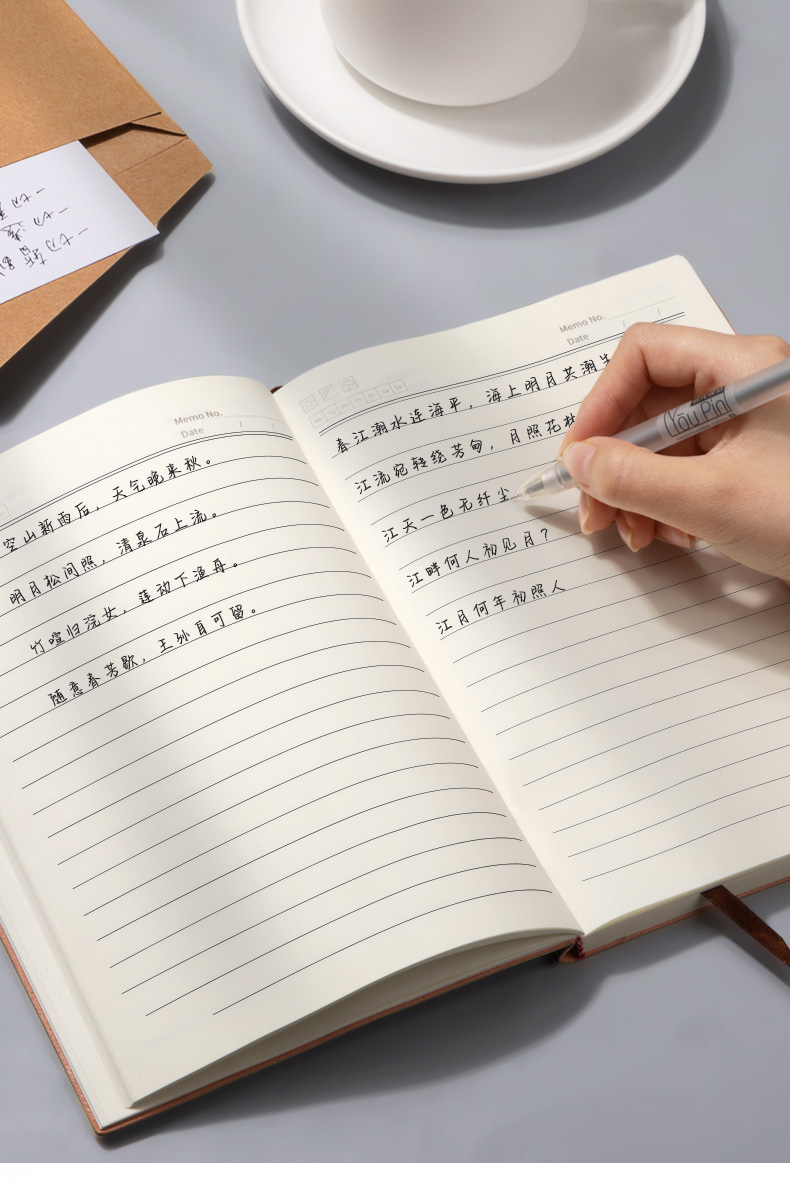 一切
一切
一切
Memo No.
Date / /
空山新雨后，天气晚来秋。
明月松间照，清泉石上流。
竹喧归浣女，莲动下渔舟。
随意春芳歇，王孙自可留。
Memo No.
Date / /
春江潮水连海平，海上明月共潮生
江流宛转绕芳甸，月照花林
江天一色无纤尘
江畔何人初见月？
江月何年初照人
You Pin